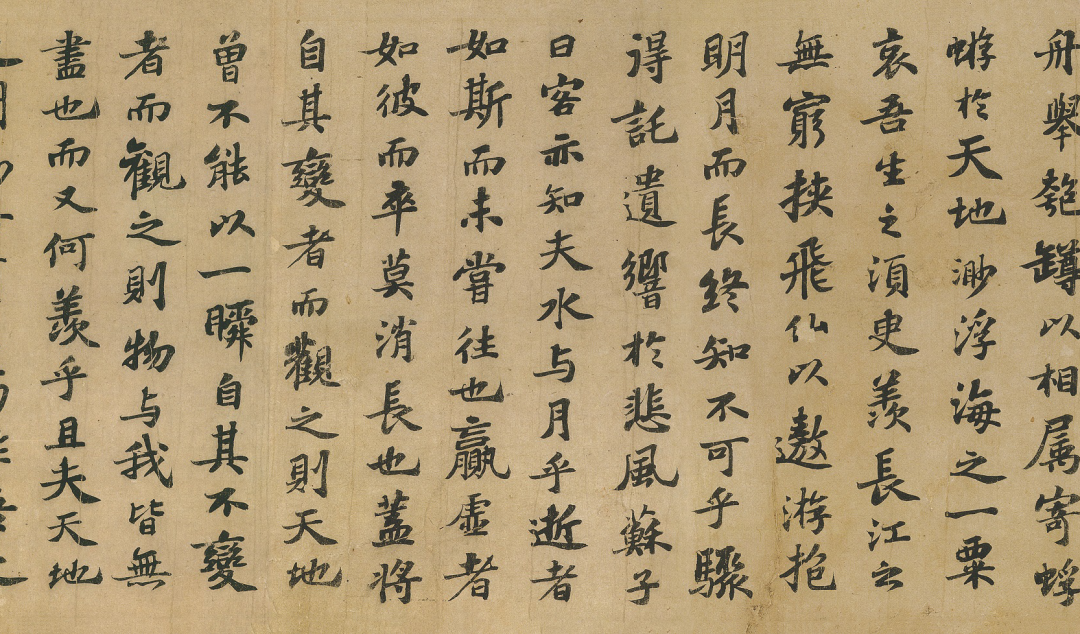 舟舉匏罇以相属寄蜉
蝣於天地渺浮海之一粟
哀吾生之須臾羨長江之
無窮挟飛仙以遨游抱
明月而長終知不可乎驟
得託遺響於悲風蘇子
曰客亦知夫水与月乎逝者
如斯而未嘗往也贏虛者
如彼而卒莫消長也蓋將
自其變者而觀之則天地
曾不能以一瞬自其不變
者而觀之則物与我皆無
盡也而又何羨乎且夫天地